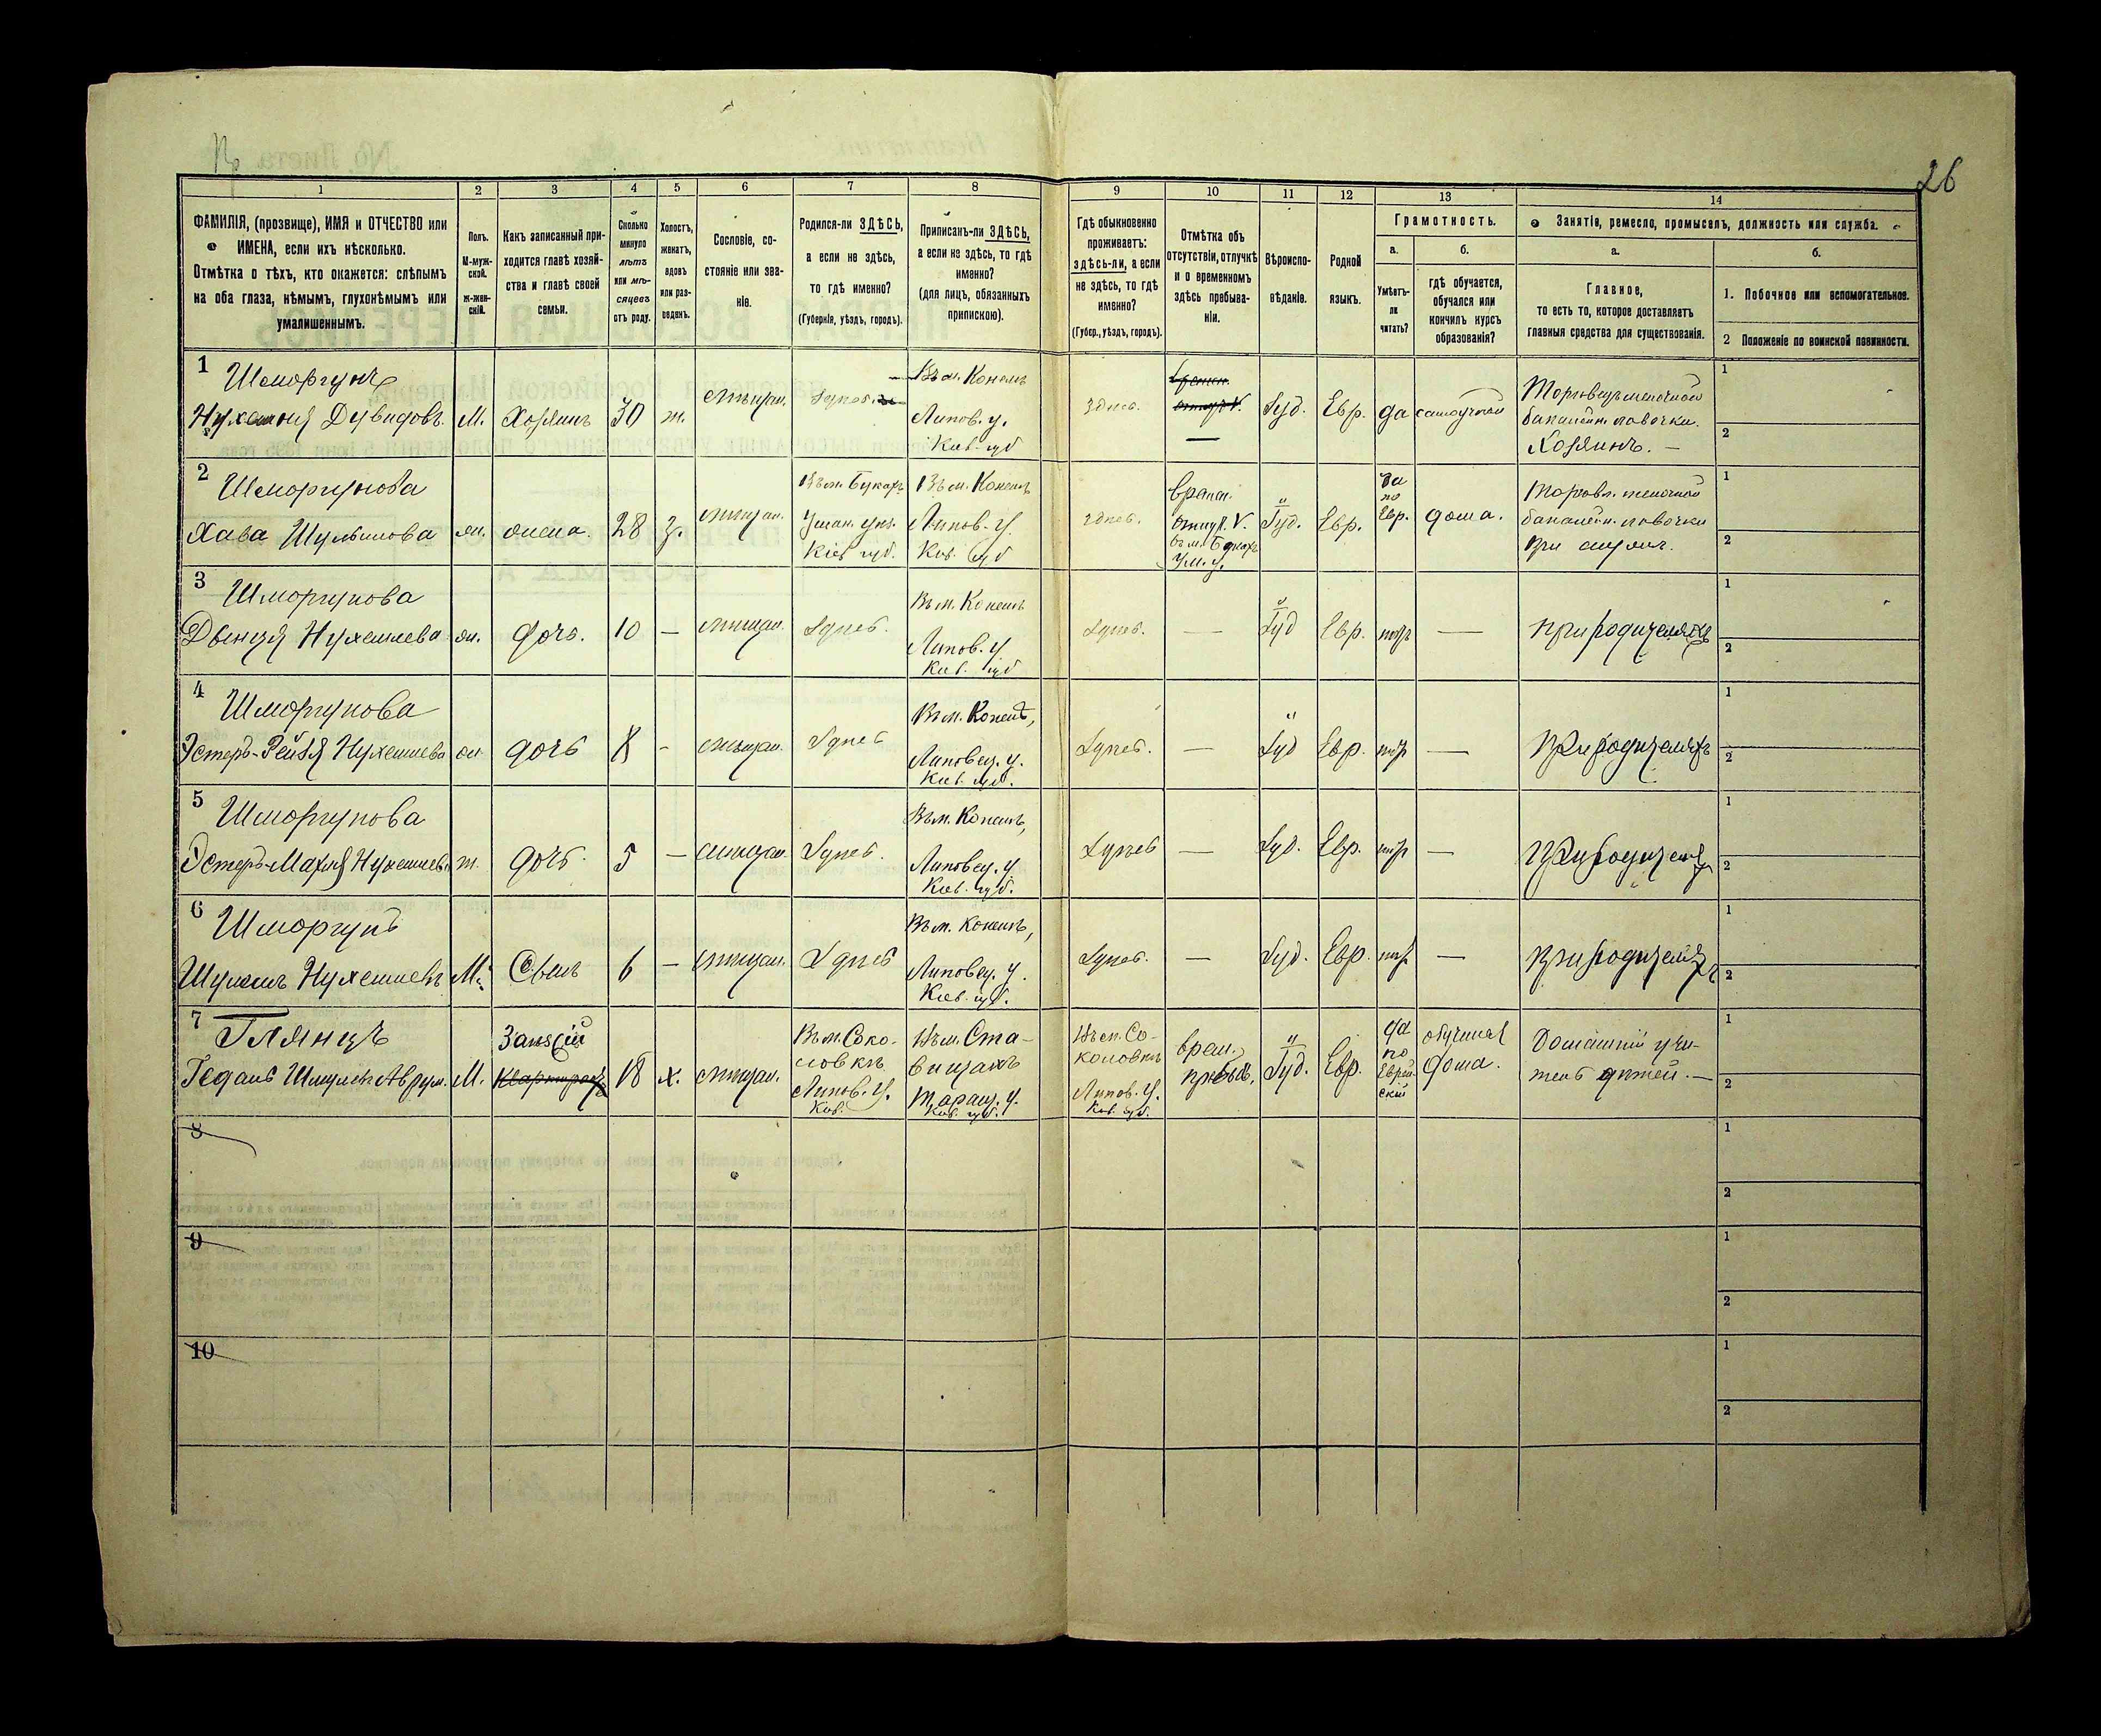 26
1 2 3 4 5 6 7 8 9 10 11 12 13 14
ФАМИЛІЯ, (прозвище), ИМЯ и ОТЧЕСТВО или
ИМЕНА, если ихъ нѣсколько.
Отмѣтка о тѣхъ, кто окажется: слѣпымъ
на оба глаза, нѣмымъ, глухонѣмымъ или
умалишеннымъ.
Полъ.
М-муж-
ской.
ж-жен-
скій.
Какъ записанный при-
ходится главѣ хозяй-
ства и главѣ своей
семьи.
Сколько
минуло
лѣтъ
или мѣ-
сяцевъ
отъ роду.
Холостъ,
женатъ,
вдовъ
или раз-
веденъ.
Сословіе, со-
стояніе или зва-
ніе.
Родился-ли ЗДѢСЬ,
а если не здѣсь,
то гдѣ именно?
(Губернія, уѣздъ, городъ).
Приписанъ-ли ЗДѢСЬ,
а если не здѣсь, то гдѣ
именно?
(для лицъ, обязанныхъ
припискою).
Гдѣ обыкновенно
проживаетъ:
здѣсь-ли, а если
не здѣсь, то гдѣ
именно?
(Губер., уѣздъ, городъ).
Отмѣтка объ
отсутствіи, отлучкѣ
и о временномъ
здѣсь пребыва-
ніи.
Вѣроиспо-
вѣданіе.
Родной
языкъ.
Грамотность.
а.
Умѣетъ-
ли
читать?
б.
гдѣ обучается,
обучался или
кончилъ курсъ
образованія?
Занятіе, ремесло, промыселъ, должность или служба.
а.
Главное,
то есть то, которое доставляетъ
главныя средства для существованія.
б.
1. Побочное или вспомогательное.
2 Положеніе по воинской повинности.
1
Шморгунъ
Дувидовъ.
М.
Хозяинъ
30
ж.
мѣщан.
Здѣсь.
Въ м. Конелѣ
Липов. у.
Кив. губ
Здѣсь.
Іуд.
Евр.
да
самоучкой
Торговецъ мелочной
бакалейн. лавочки.
Хозяинъ. —
1
2
2
Шморгунова
Хава Шулимова
жн.
жена.
28
З.
мѣщан.
Въ м. Букахъ
Уман. уѣз.
Кіев губ.
Въ м. Конелѣ
Липов. У.
Кив. губ
здѣсь.
врем.
отлуч. V.
въ м. Букахъ
Ум. у.
Іуд.
Евр.
да
по
Евр.
дома.
Торговл. мелочной
бакалейн. лавочки
при мужѣ.
1
2
3
Шморгунова
Двейзя Нухимева
жн.
дочь.
10
—
мѣщан.
Здѣсь.
Въ м. Конелѣ
Липов. У
Кив. губ
Здѣсь.
—
Іуд
Евр.
нѣтъ
—
при родителяхъ
1
2
4
Шморгунова
Эстеръ-Рейзя Нухимева
жн
дочь
8
-
мѣщан.
Здѣсь
Въ м. Конелѣ,
Липовец. у.
Кив. губ.
Здѣсь.
—
Іуд
Евр.
нѣтъ
—
при родителяхъ
1
2
5
Шморгунова
ж.
дочь.
5
—
мѣщан.
Здѣсь.
Въ м. Конелѣ,
Липовец. у
Кив. губ.
Здѣсь
—
Іуд.
Евр.
нѣтъ
—
при родителях
1
2
6
Шморгунъ
Шулимъ Нухимевъ
М.
Сынъ
6
—
мѣщан.
Здѣсь
Въ м. Конелѣ,
Липовец. у.
Кив. губ.
Здѣсь.
—
Іуд.
Евр.
нѣтъ
—
при родителях
1
2
7
Глянцъ
М.
Квартирантъ
18
х.
мѣщан.
Въ м. Соко-
ловкѣ
Липов. У.
Кив.
Въ м. Ста-
вищахъ
Таращ. у.
Кив. губ.
Въ м. Со-
коловкѣ
Липов. У.
Кив. губ.
врем.
прибыв.
Іуд.
Евр.
да
по
Еврей-
скій
обучался
дома.
Домашній учи-
тель дѣтей. —
1
2
8
1
2
9
1
2
10
1
2